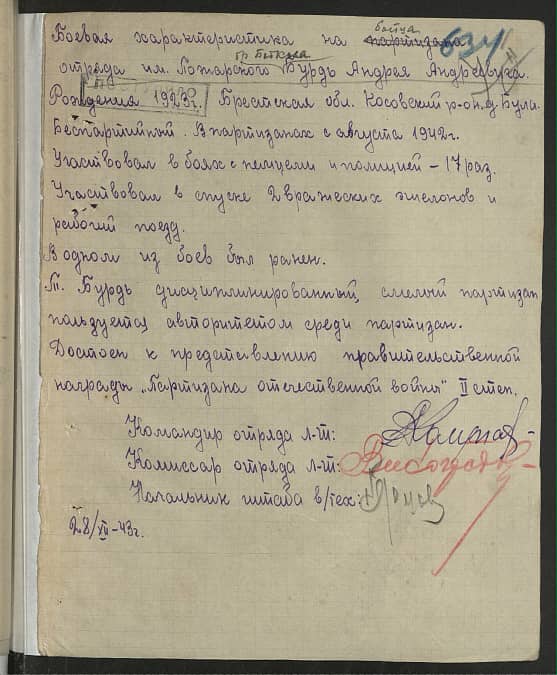 Боевая характеристика на партизана бойца 634
отряда им. Пожарского Бурдь Андрея Андреевича.
Рождения 1923г. Брестская обл. Косовский р-он, д. Була.
Беспартийный. В партизанах с августа 1942г.
Участвовал в боях с немцеми и полицией – 17 раз.
Участвовал в спуске 2 вражеских эшелонов и
рабочий поезд.
В одном из боев был ранен.
Т. Бурдь дисциплинированный, смелый партизан
пользуется авторитетом среди партизан.
Достоен к предствлению правительственной
награды „Партизана отечественной войны" II степ.
Командир отряда л-т:
Комиссар отряда л-т:
Начальник штаба в/тех:
28/XII-43г.